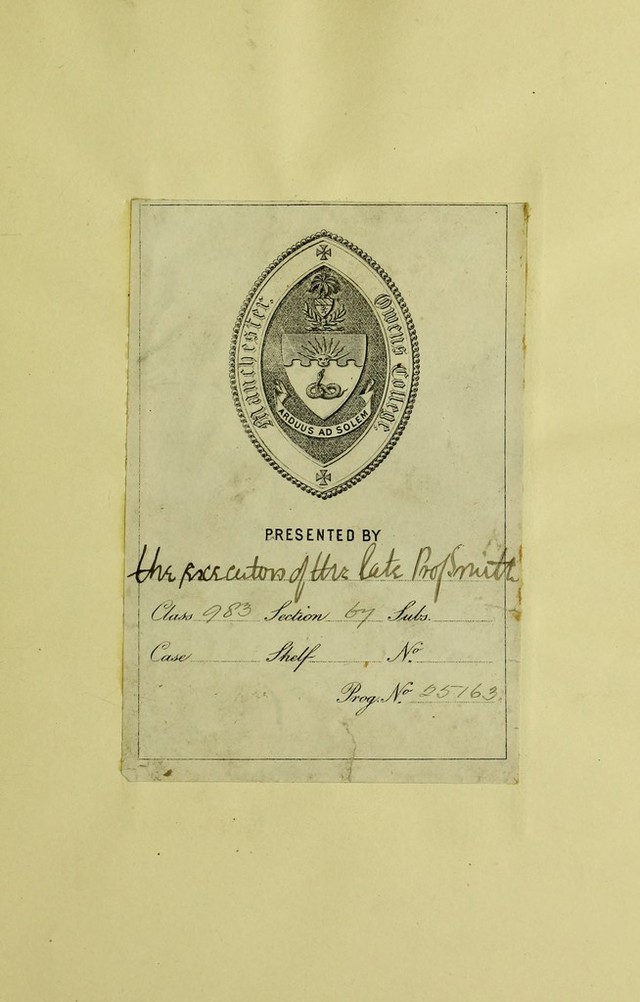 Manchester Owens College
ARDUUS AD SOLEM
PRESENTED BY
the executors of the late Prof Smith
Class 983 Section 67 Subs.
Case Shelf No
Prog. No 25163